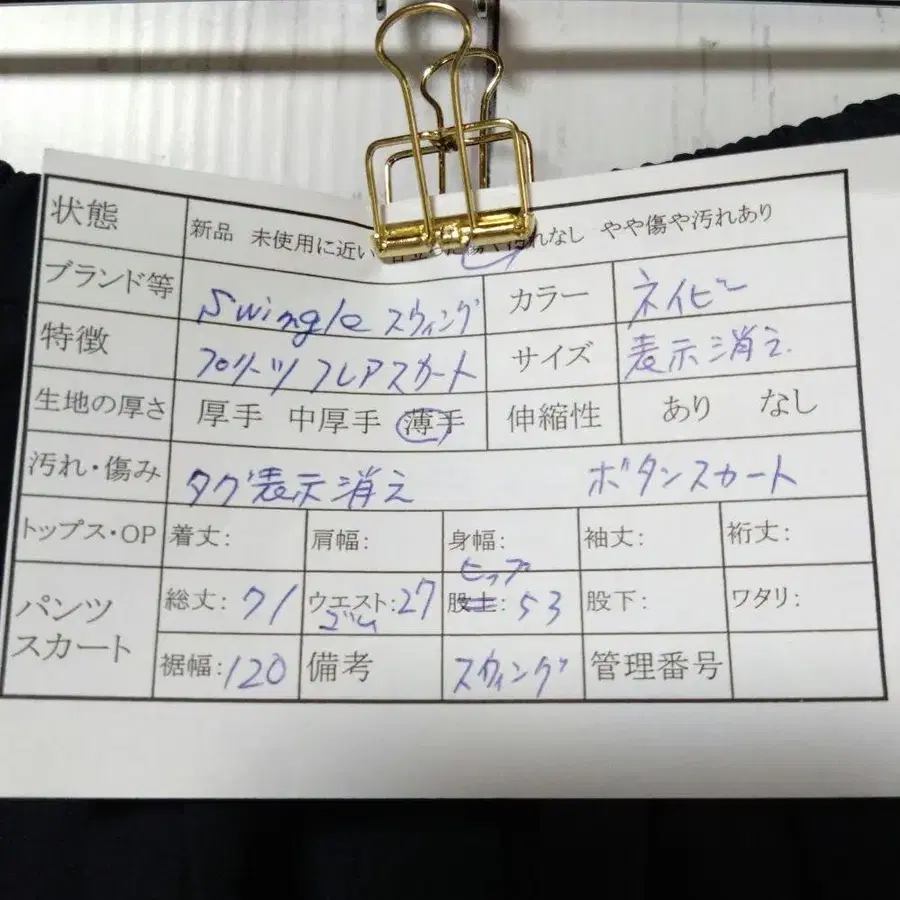 状態 新品 未使用に近い 目立った傷や汚れなし やや傷や汚れあり
ブランド等 Swingle スウィングル カラー ネイビー
特徴 プリーツ フレアスカート サイズ 表示消え.
生地の厚さ 厚手 中厚手 薄手 伸縮性 あり なし
汚れ・傷み タグ表示消え ボタンスカート
トップス・OP 着丈: 肩幅: 身幅: 袖丈: 裄丈:
ヒップ
パンツ スカート 総丈: 71 ウエスト:27 股上: 53 股下: ワタリ:
ゴム
裾幅:120 備考 スウィング 管理番号